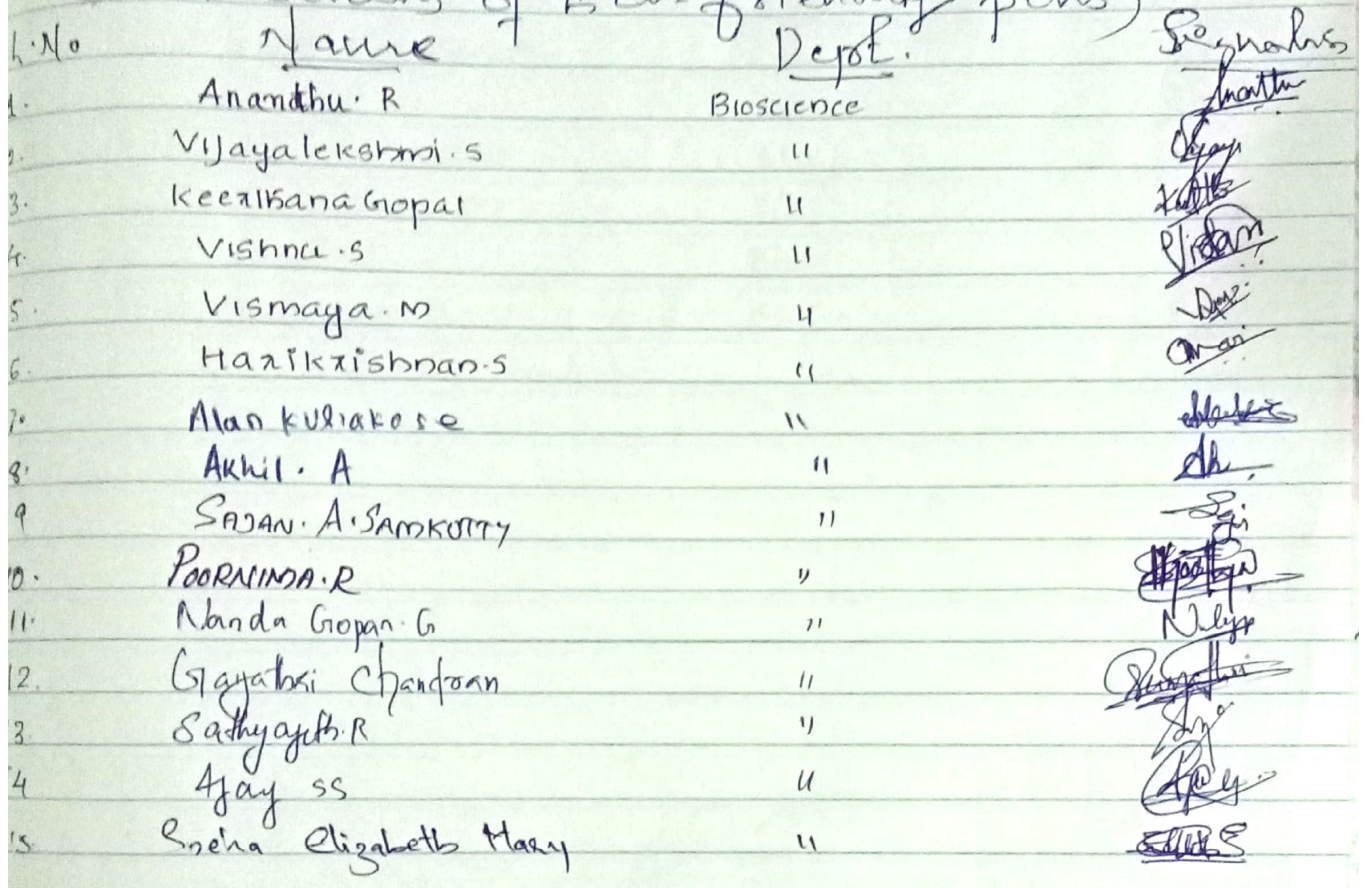 of pens)
No Name Dept. Signatures
1. Anandhu. R Bioscience
2. Vijayalekshmi. S "
3. Keerthana Gopal "
4. Vishnu. S "
5. Vismaya. M "
6. Harikrishnan. S "
7. Alan Kuriakose "
8. Akhil. A "
9 SAJAN. A. SAMKUTTY "
10. POORNIMA. R "
11. Nanda Gopan. G "
12. Gayathri Chandran "
3. Sathyajith. R "
4 Ajay SS "
15. Sneha Elizabeth Mary "